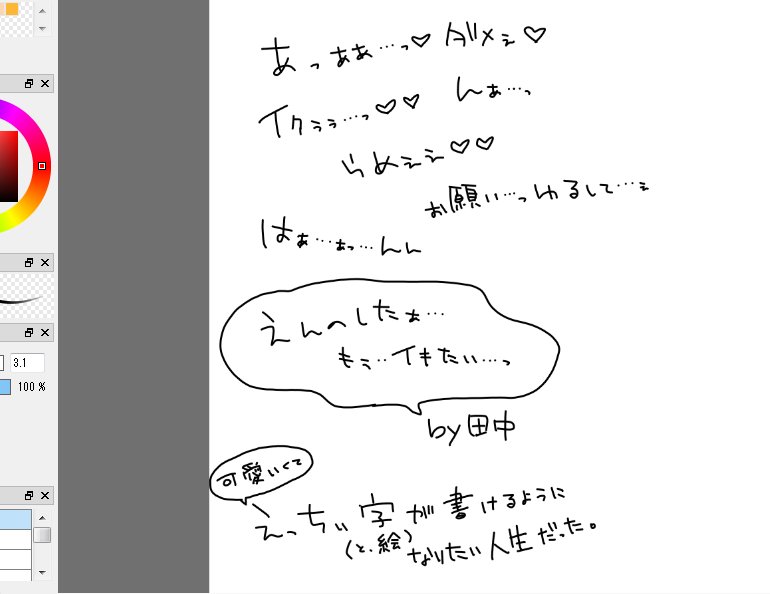 あっぁぁ…っ♡ ダメぇ♡
イクぅぅ…っ♡♡ んぁ…っ
らめぇぇ♡♡
お願い…っゆるして…ぇ
はぁ…ぁっ…んん
えんへしたぁ…
もぅ…イキたぃ…っ
by田中
可愛いくて
えっちぃ字が書けるように
(と、絵)
なりたい人生だった。
3.1
100 %